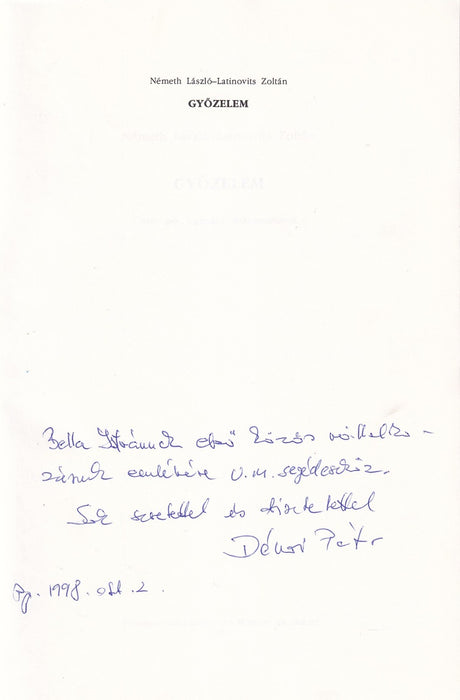 Németh László–Latinovits Zoltán
GYŐZELEM
Bella Istvánnak első közös vállalko-
zásunk emlékére v.m. segédeszköz.
Sok szeretettel és tisztelettel
Péter
Bp. 1998. okt. 2.